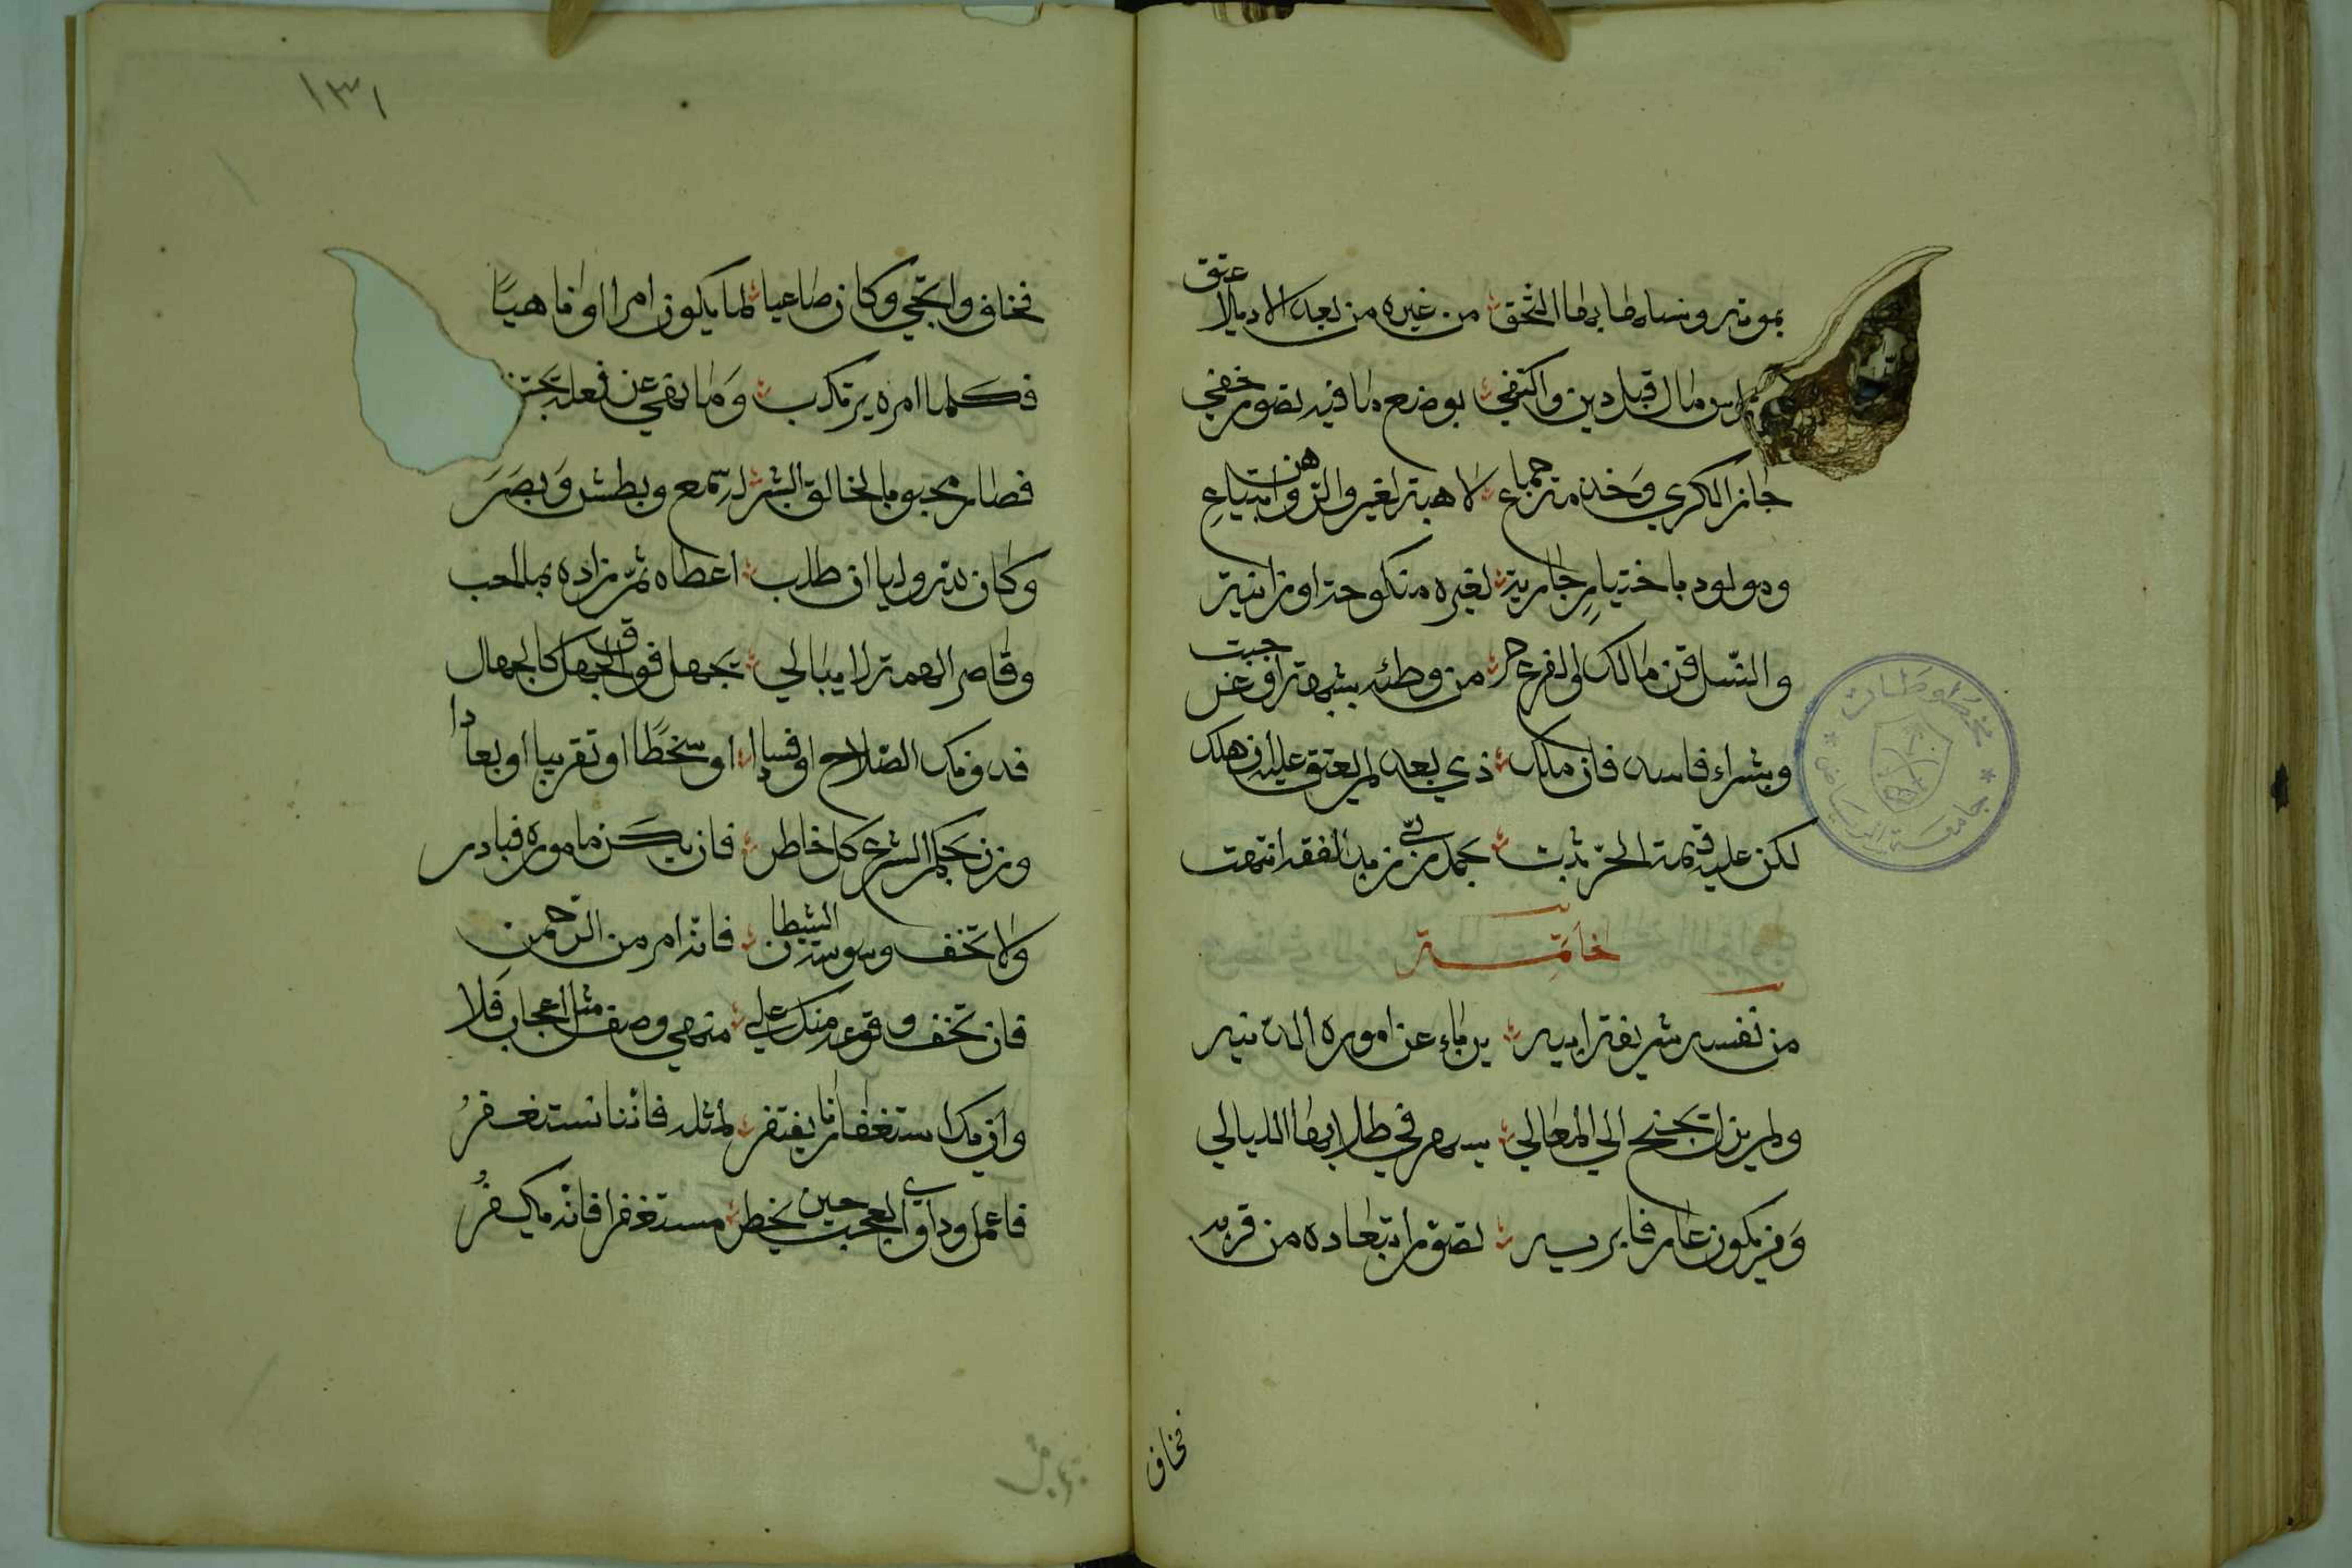 بموته ونسلها بها التحق من غيره من بعد الايلاد عتق
من راس مال قبل دين واكتفي بوضع ما فيه تصور خفي
جاز الكرى وخدمة جماع لا هبة لغير والرهن وابتياع
ومولود باختيار جارية لغيره منكوحة او زانية
والنسل قن مالك والفرع حر من وطئه بشبهة او غر جبت
وبشراء فاسد فان ملك ذي بعد لم يعتق عليه ان هلك
لكن عليه قيمة الحر ثبت بحمد ربي زبد الفقه انتهت
خاتمة
من نفسه شريفة ابيه يرباء عن اموره الدنيه
ولم يزل يجنح الى المعالي يسهر في طلابها الليالي
ومن يكون عارفا بربه تصور ابتعاده من قربه
فخاف
١٣١
فخاف وارتجي وكان صاغيا لما يكون امرا او ناهيا
فكلما امره يرتكب وما نهي عن فعله يجتنب
فصار محبوبا لخالق البشر له سمع وبطش وبصر
وكان لله وليا ان طلب اعطاه ثم زاده مما احب
وقاصر الهمة لا يبالي يجهل فوق الجهل كالجهال
فدونك الصلاح او فسادا او سخطا او تقريبا او بعادا
وزن بحكم الشرع كل خاطر فان يكن ماموره فبادر
ولا تخف وسوسة الشيطان فانه امر من الرحمن
فان تخف وقوعه منك على منهي وصف مثل اعجاب فلا
وان يك استغفارنا يفتقر لمثله فاننا نستغفر
فاعمل وداوي العجب حين يخطر مستغفرا فانه يكفر
مخطوطات
جامعة الرياض